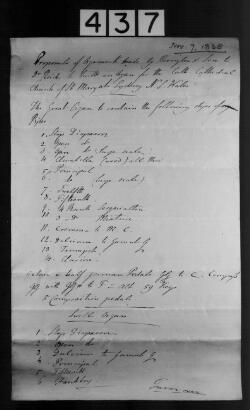 437
Nov. 7, 1838
Proposals of Agreement made by
to build an organ for the Cath Cathedral
Church of St Mary at Sydney N. S. Wales
The Great Organ to contain the following stops
Pipes
1. Stop Diapason
2. Open do
3. Open do (large scale)
4. Claribella (wood) all thro
5. Principal
6. do (large scale)
7. Twelfth
8. Fifteenth
9. 4 Ranks Sesquialtra
10. 3 do Mixture
11. Cremona to M. C.
12. Dulciana to Gamut G
13. Trumpet
14. Clarion
octave & half german Pedals
to F in alt 59 Keys
5 Composition pedals
Swell Organ
1. Stop Diapason
2. Open do
3. Dulciana to Gamut G
4. Principal
5. Fifteenth
6. Hautboy